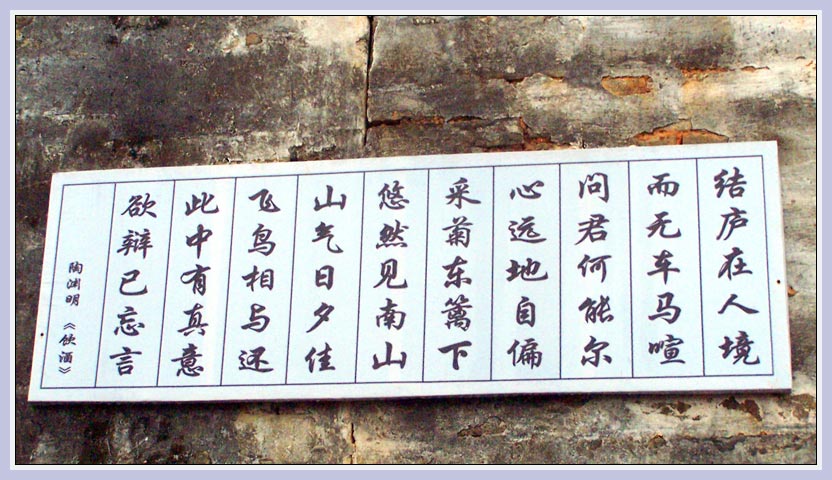 结庐在人境
而无车马喧
问君何能尔
心远地自偏
采菊东篱下
悠然见南山
山气日夕佳
飞鸟相与还
此中有真意
欲辩已忘言
陶渊明《饮酒》